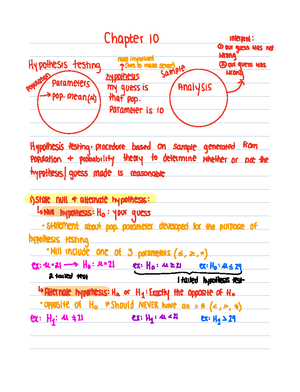 Chapter 10
Interpret:
① our guess was not wrong
② our guess was wrong
Hypothesis testing
most important
? (has to make sense)
Population
Parameters
→ pop. mean (μ)
hypothesis
my guess is
that pop.
Parameter is 10
Sample
Analysis
Hypothesis testing: procedure based on sample generated from
Population & probability theory to determine whether or not the
hypothesis/guess made is reasonable
1) State null & alternate hypothesis:
↳ Null hypothesis: H₀: your guess
• Statement about pop. parameter developed for the purpose of
hypothesis testing
• Null include one of 3 parameters (≤, ≥, =)
ex: μ=21 → H₀: μ=21 ex: H₀: μ≥21 ex: H₀: μ≤29
2 tailed test 1 tailed hypothesis test
↳ Alternate hypothesis: Hₐ or H₁: Exactly the opposite of H₀
• opposite of H₀ * Should NEVER have an = * (<, >, ≠)
ex: H₁: μ≠21 ex: H₁: μ<21 ex: H₁>29